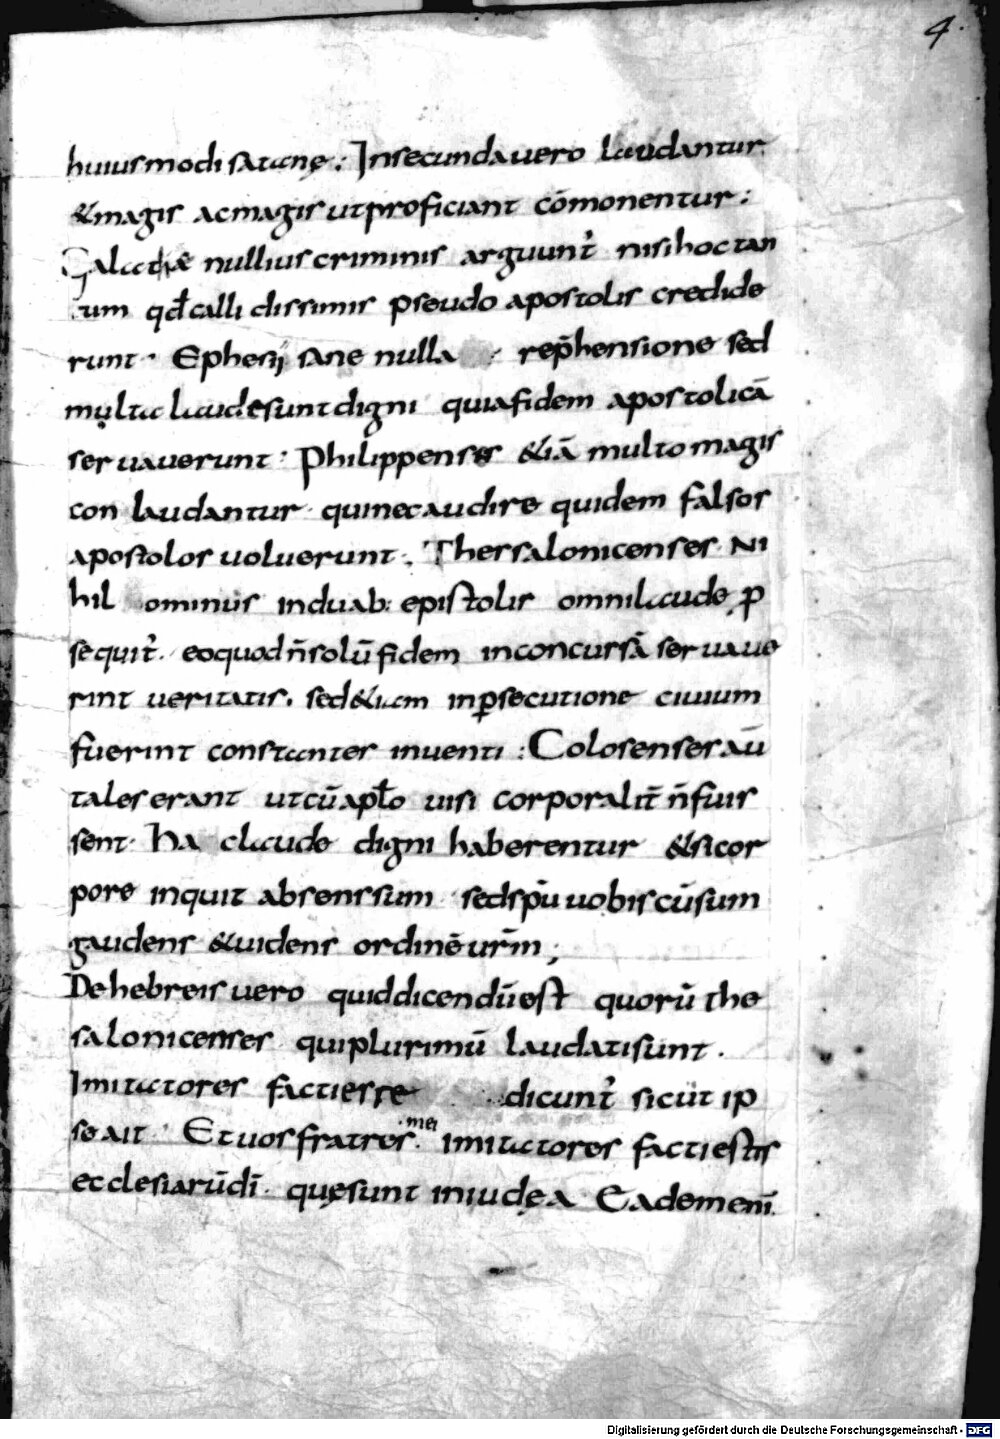 4.
huiusmodi satane : Insecundauero laudantur.
&magis acmagis utproficiant cōmonentur :
Galathæ nullius criminis arguunt᷑ nisi hoc tan
tum qđ calli dissimis pseudo apostolis credide
runt · Ephesij sane nulla rep̄hensione sed
multa laude sunt digni quia fidem apostolicā
ser uauerunt : Philippenses &iā multo magis
con laudantur · quinec audire quidem falsos
apostolos uoluerunt . Thessalonicenses Ni
hil ominus induab: epistolis omni laude ꝑ
sequit᷑ . eoquod n̄ solū fidem inconcussā ser uaue
rint ueritatis . sed &iam inꝑsecutione ciuium
fuerint constanter inuenti : Colosenses aū
tales erant utcū apl̄o uisi corporalit᷑ n̄ fuis
sent · ha c laude digni haberentur &si cor
pore inquit absens sum sed sp̄u uobis cū sum
gaudens &uidens ordinē ur̄m ;
De hebreis uero quid dicendū est quorū the
salonicenses quiplurimū laudati sunt .
Imitatores facti esse dicunt᷑ sicut ip
se ait · Et uos fratres mei imitatores facti estis
ecclesiarū dī · quę sunt in iudęa Eadem enī
Digitalisierung gefördert durch die Deutsche Forschungsgemeinschaft - DFG